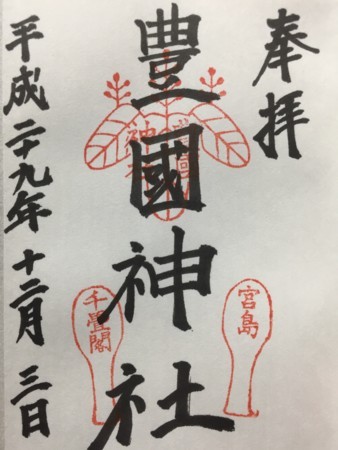 奉拝
豊國神社
平成二十九年十二月三日
豊國神社
宮島
千畳閣